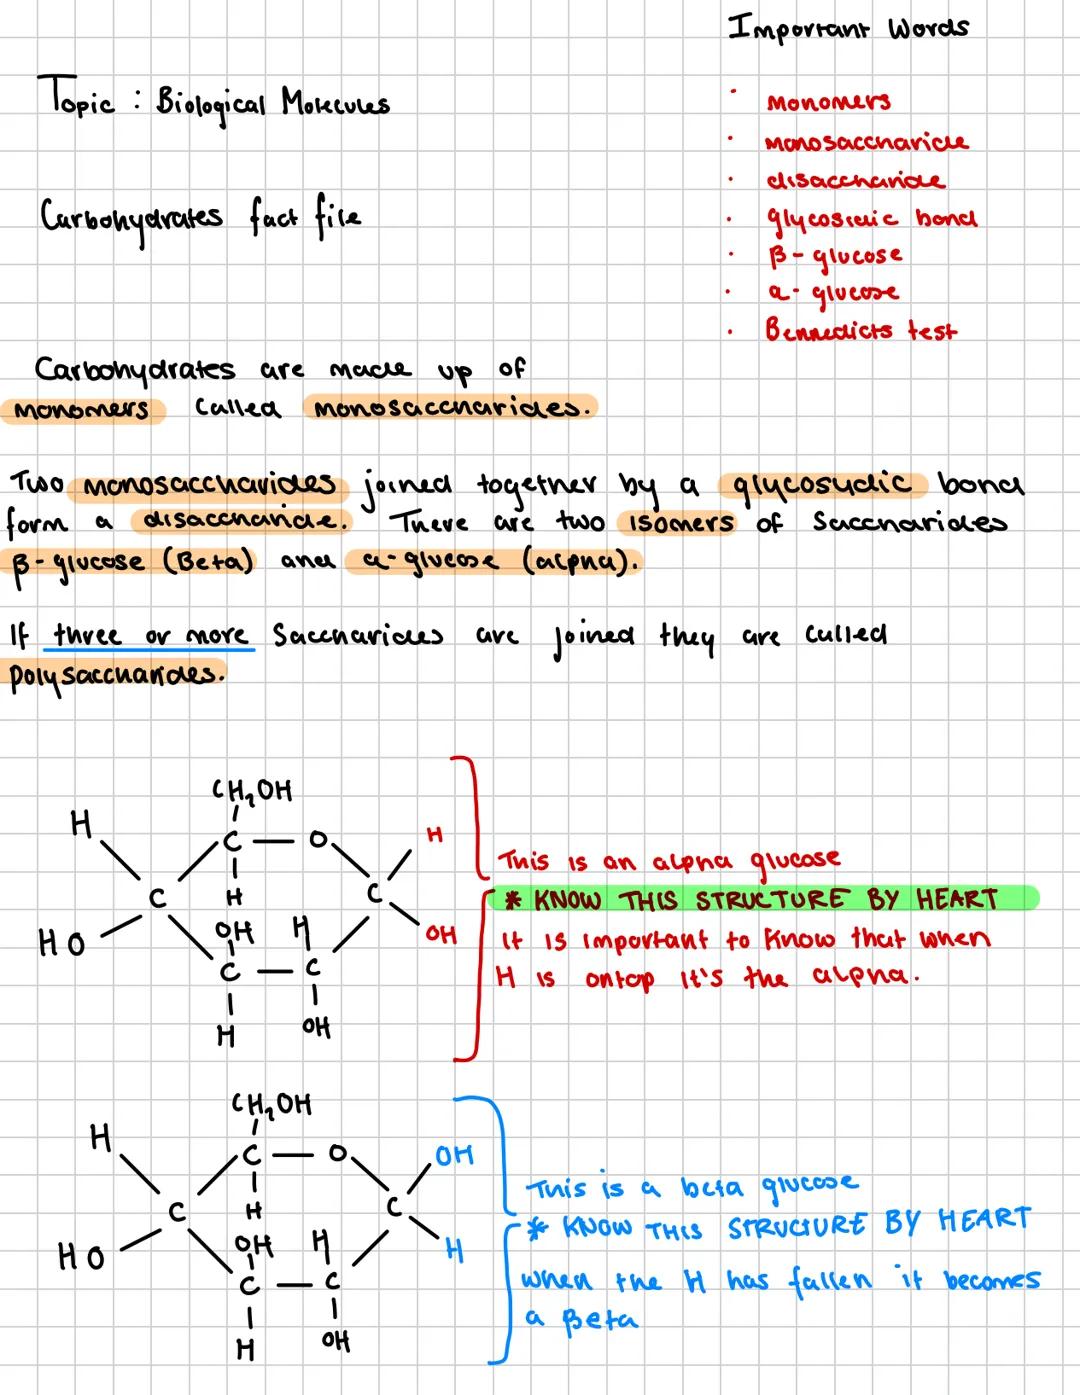 Important Words
Topic : Biological Molecules
• monomers
• monosaccharide
• disaccharide
Carbohydrates fact file
• glycosidic bond
• β-glucose
• α-glucose
• Bennedicts test
Carbohydrates are made up of
monomers called monosaccharides.
Two monosaccharides joined together by a glycosydic bond
form a disaccharide. There are two isomers of Saccharides
β-glucose (Beta) and α-glucose (alpha).
If three or more Saccharides are joined they are called
polysaccharides.
CH₂OH
H
C O H
C H C
HO OH H OH
C C
H OH
This is an alpha glucose
* KNOW THIS STRUCTURE BY HEART
It is important to know that when
H is ontop it's the alpha.
CH₂OH
H
C O OH
C H C
HO OH H H
C C
H OH
This is a beta glucose
* KNOW THIS STRUCTURE BY HEART
when the H has fallen it becomes
a Beta